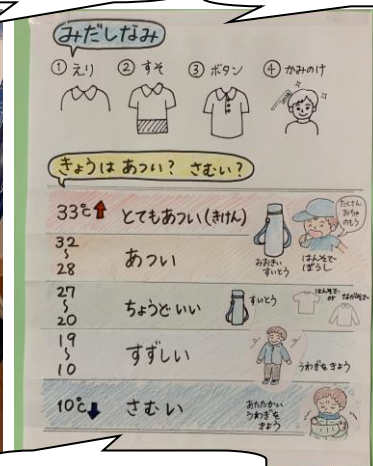 みだしなみ
① えり ② すそ ③ ボタン ④ かみのけ
きょうは あつい? さむい?
33℃⬆ とてもあつい(きけん)
たくさん
おちゃ
のもう
おおきい
すいとう
はんそで
ぼうし
32
〜
28
あつい
27
〜
20
ちょうどいい
すいとう
はんそで
or
ながそで
19
〜
10
すずしい
うわぎをきよう
10℃⬇ さむい
あたたかい
うわぎを
きよう